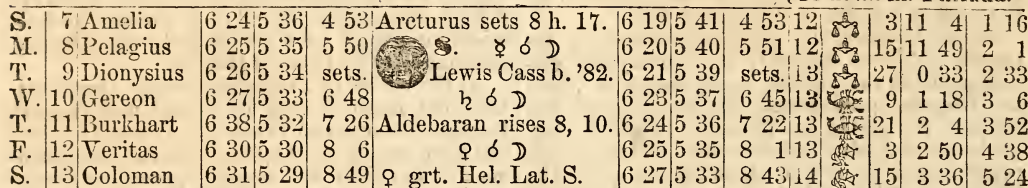 S. 7 Amelia 6 24 5 36 4 53 Arcturus sets 8 h. 17. 6 19 5 41 4 53 12 ♎ 3 11 4 1 16
M. 8 Pelagius 6 25 5 35 5 50 ☊. ☿ ☌ ☽ 6 20 5 40 5 51 12 ♎ 15 11 49 2 1
T. 9 Dionysius 6 26 5 34 sets. Lewis Cass b. '82. 6 21 5 39 sets. 13 ♎ 27 0 33 2 33
W. 10 Gereon 6 27 5 33 6 48 ♄ ☌ ☽ 6 23 5 37 6 45 13 ♏ 9 1 18 3 6
T. 11 Burkhart 6 38 5 32 7 26 Aldebaran rises 8, 10. 6 24 5 36 7 22 13 ♏ 21 2 4 3 52
F. 12 Veritas 6 30 5 30 8 6 ♀ ☌ ☽ 6 25 5 35 8 1 13 ♐ 3 2 50 4 38
S. 13 Coloman 6 31 5 29 8 49 ♀ grt. Hel. Lat. S. 6 27 5 33 8 43 14 ♐ 15 3 36 5 24